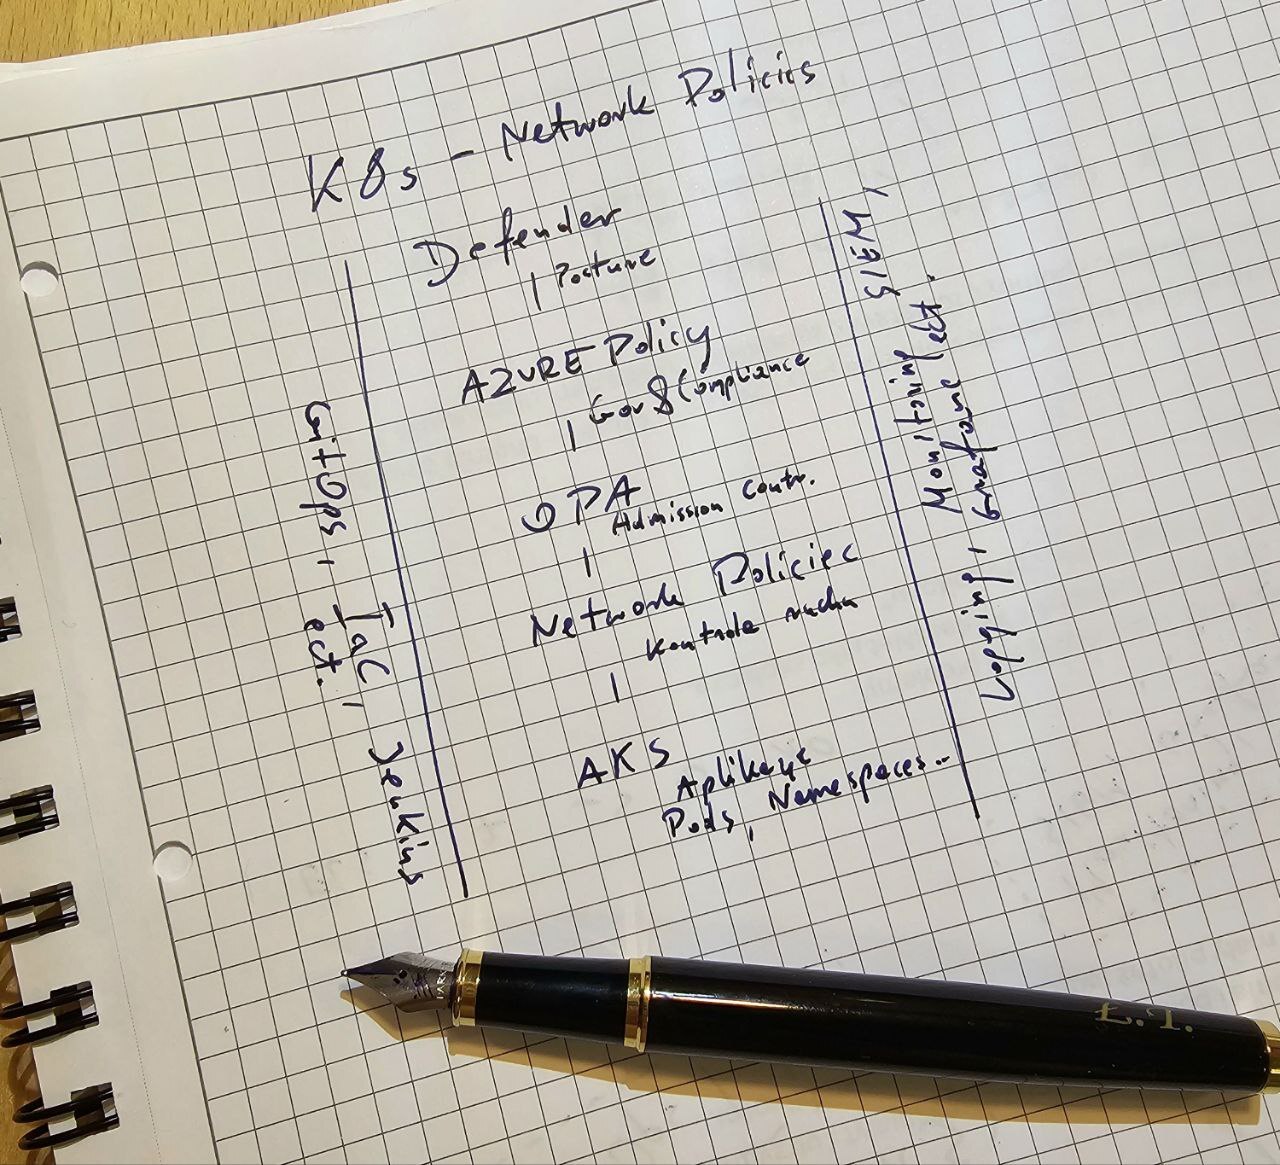 K8s - Network Policies
Defender
| Posture
AZURE Policy
| Gov & Compliance
OPA
Admission contr.
|
Network Policies
Kontrola ruchu
|
AKS
Aplikacje
Pods, Namespaces..
GitOps, IaC, Jenkins
ect.
SIEM,
Monitoring
Logging, Grafana ect.
Ł.T.